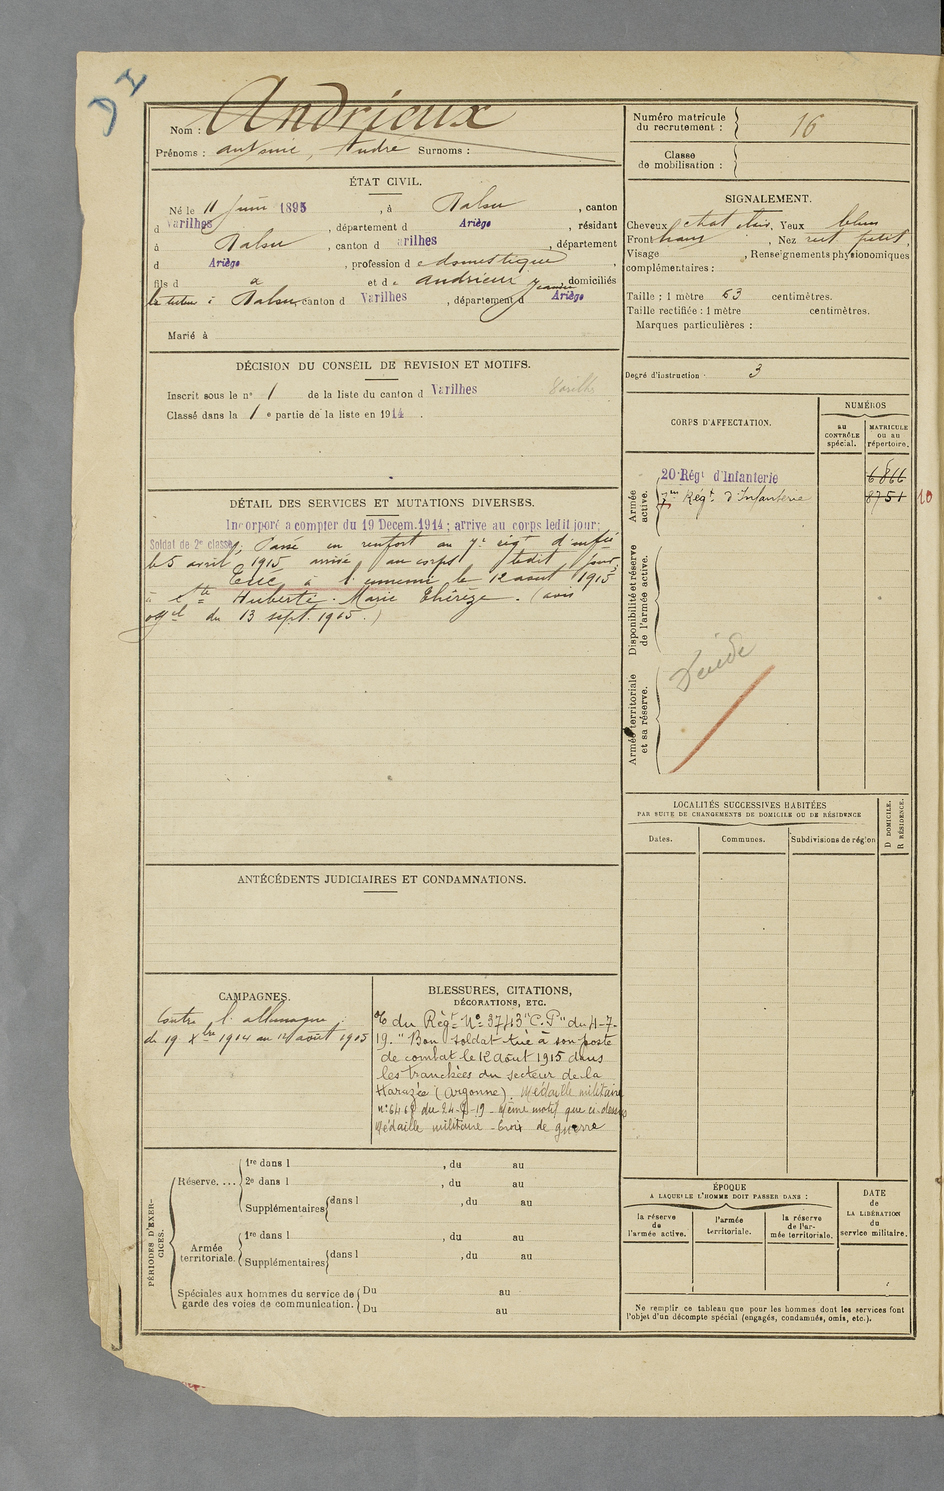 Nom : Andrieux
Prénoms : Antonie, Andre Surnoms :
ÉTAT CIVIL.
Né le 11 Juin 1895, à Dalou, canton
d Varilhes, département d Ariège, résidant
à Dalou, canton d arilhes, département
d Ariège, profession d e domestique
fils d a et d e Andrieux Jeanne, domiciliés
Dalou, canton d Varilhes, département d Ariège
Marié à
DÉCISION DU CONSEIL DE REVISION ET MOTIFS.
Inscrit sous le n° 1 de la liste du canton d Varilhes Varilhes
Classé dans la 1 e partie de la liste en 1914.
DÉTAIL DES SERVICES ET MUTATIONS DIVERSES.
Incorporé à compter du 19 Decem. 1914; arrivé au corps ledit jour;
Soldat de 2e classe; Passé en renfort au 7e régt d'infie
le 5 avril 1915 arrivé au corps ledit jour.
Tué à l'ennemi le 12 aout 1915
à Ste Huberte. Marie Thérèze. (avis
offel du 13 sept. 1915.)
ANTÉCÉDENTS JUDICIAIRES ET CONDAMNATIONS.
CAMPAGNES.
Contre l'allemagne :
du 19 Xbre 1914 au 12 août 1915
BLESSURES, CITATIONS,
DÉCORATIONS, ETC.
O/ du Régt N° 3743 "C.P" du 4-7-
19. "Bon soldat tué à son poste
de combat le 12 aout 1915 dans
les tranchées du secteur de la
Harazée (Argonne). Médaille militaire
du 24-9-19 - Même motif que ci-dessus
Médaille militaire - Croix de guerre
PÉRIODES D'EXERCICES.
Réserve. ... 1re dans l , du au
2e dans l , du au
Supplémentaires dans l , du au
au
Armée territoriale. 1re dans l , du au
Supplémentaires dans l , du au
au
Spéciales aux hommes du service de garde des voies de communication. Du au
Du au
Numéro matricule
du recrutement : 16
Classe
de mobilisation :
SIGNALEMENT.
Cheveux chat clair, Yeux bleu
Front haut, Nez rect petit,
Visage , Renseignements physionomiques
complémentaires :
Taille : 1 mètre 63 centimètres.
Taille rectifiée : 1 mètre centimètres.
Marques particulières :
Degré d'instruction : 3
CORPS D'AFFECTATION.
NUMÉROS
au
CONTRÔLE
spécial.
MATRICULE
ou au
répertoire.
Armée
active.
20 Régt d'Infanterie 6866
7me Régt d'Infanterie 8751 10
Disponibilité et réserve
de l'armée active.
Armée territoriale
et sa réserve.
Décédé
LOCALITÉS SUCCESSIVES HABITÉES
PAR SUITE DE CHANGEMENTS DE DOMICILE OU DE RÉSIDENCE
D DOMICILE.
R RÉSIDENCE.
Dates. Communes. Subdivisions de région
ÉPOQUE
A LAQUELLE L'HOMME DOIT PASSER DANS :
la réserve
de
l'armée active.
l'armée
territoriale.
la réserve
de l'ar-
mée territoriale.
DATE
de
LA LIBÉRATION
du
service militaire.
Ne remplir ce tableau que pour les hommes dont les services font
l'objet d'un décompte spécial (engagés, condamnés, omis, etc.).